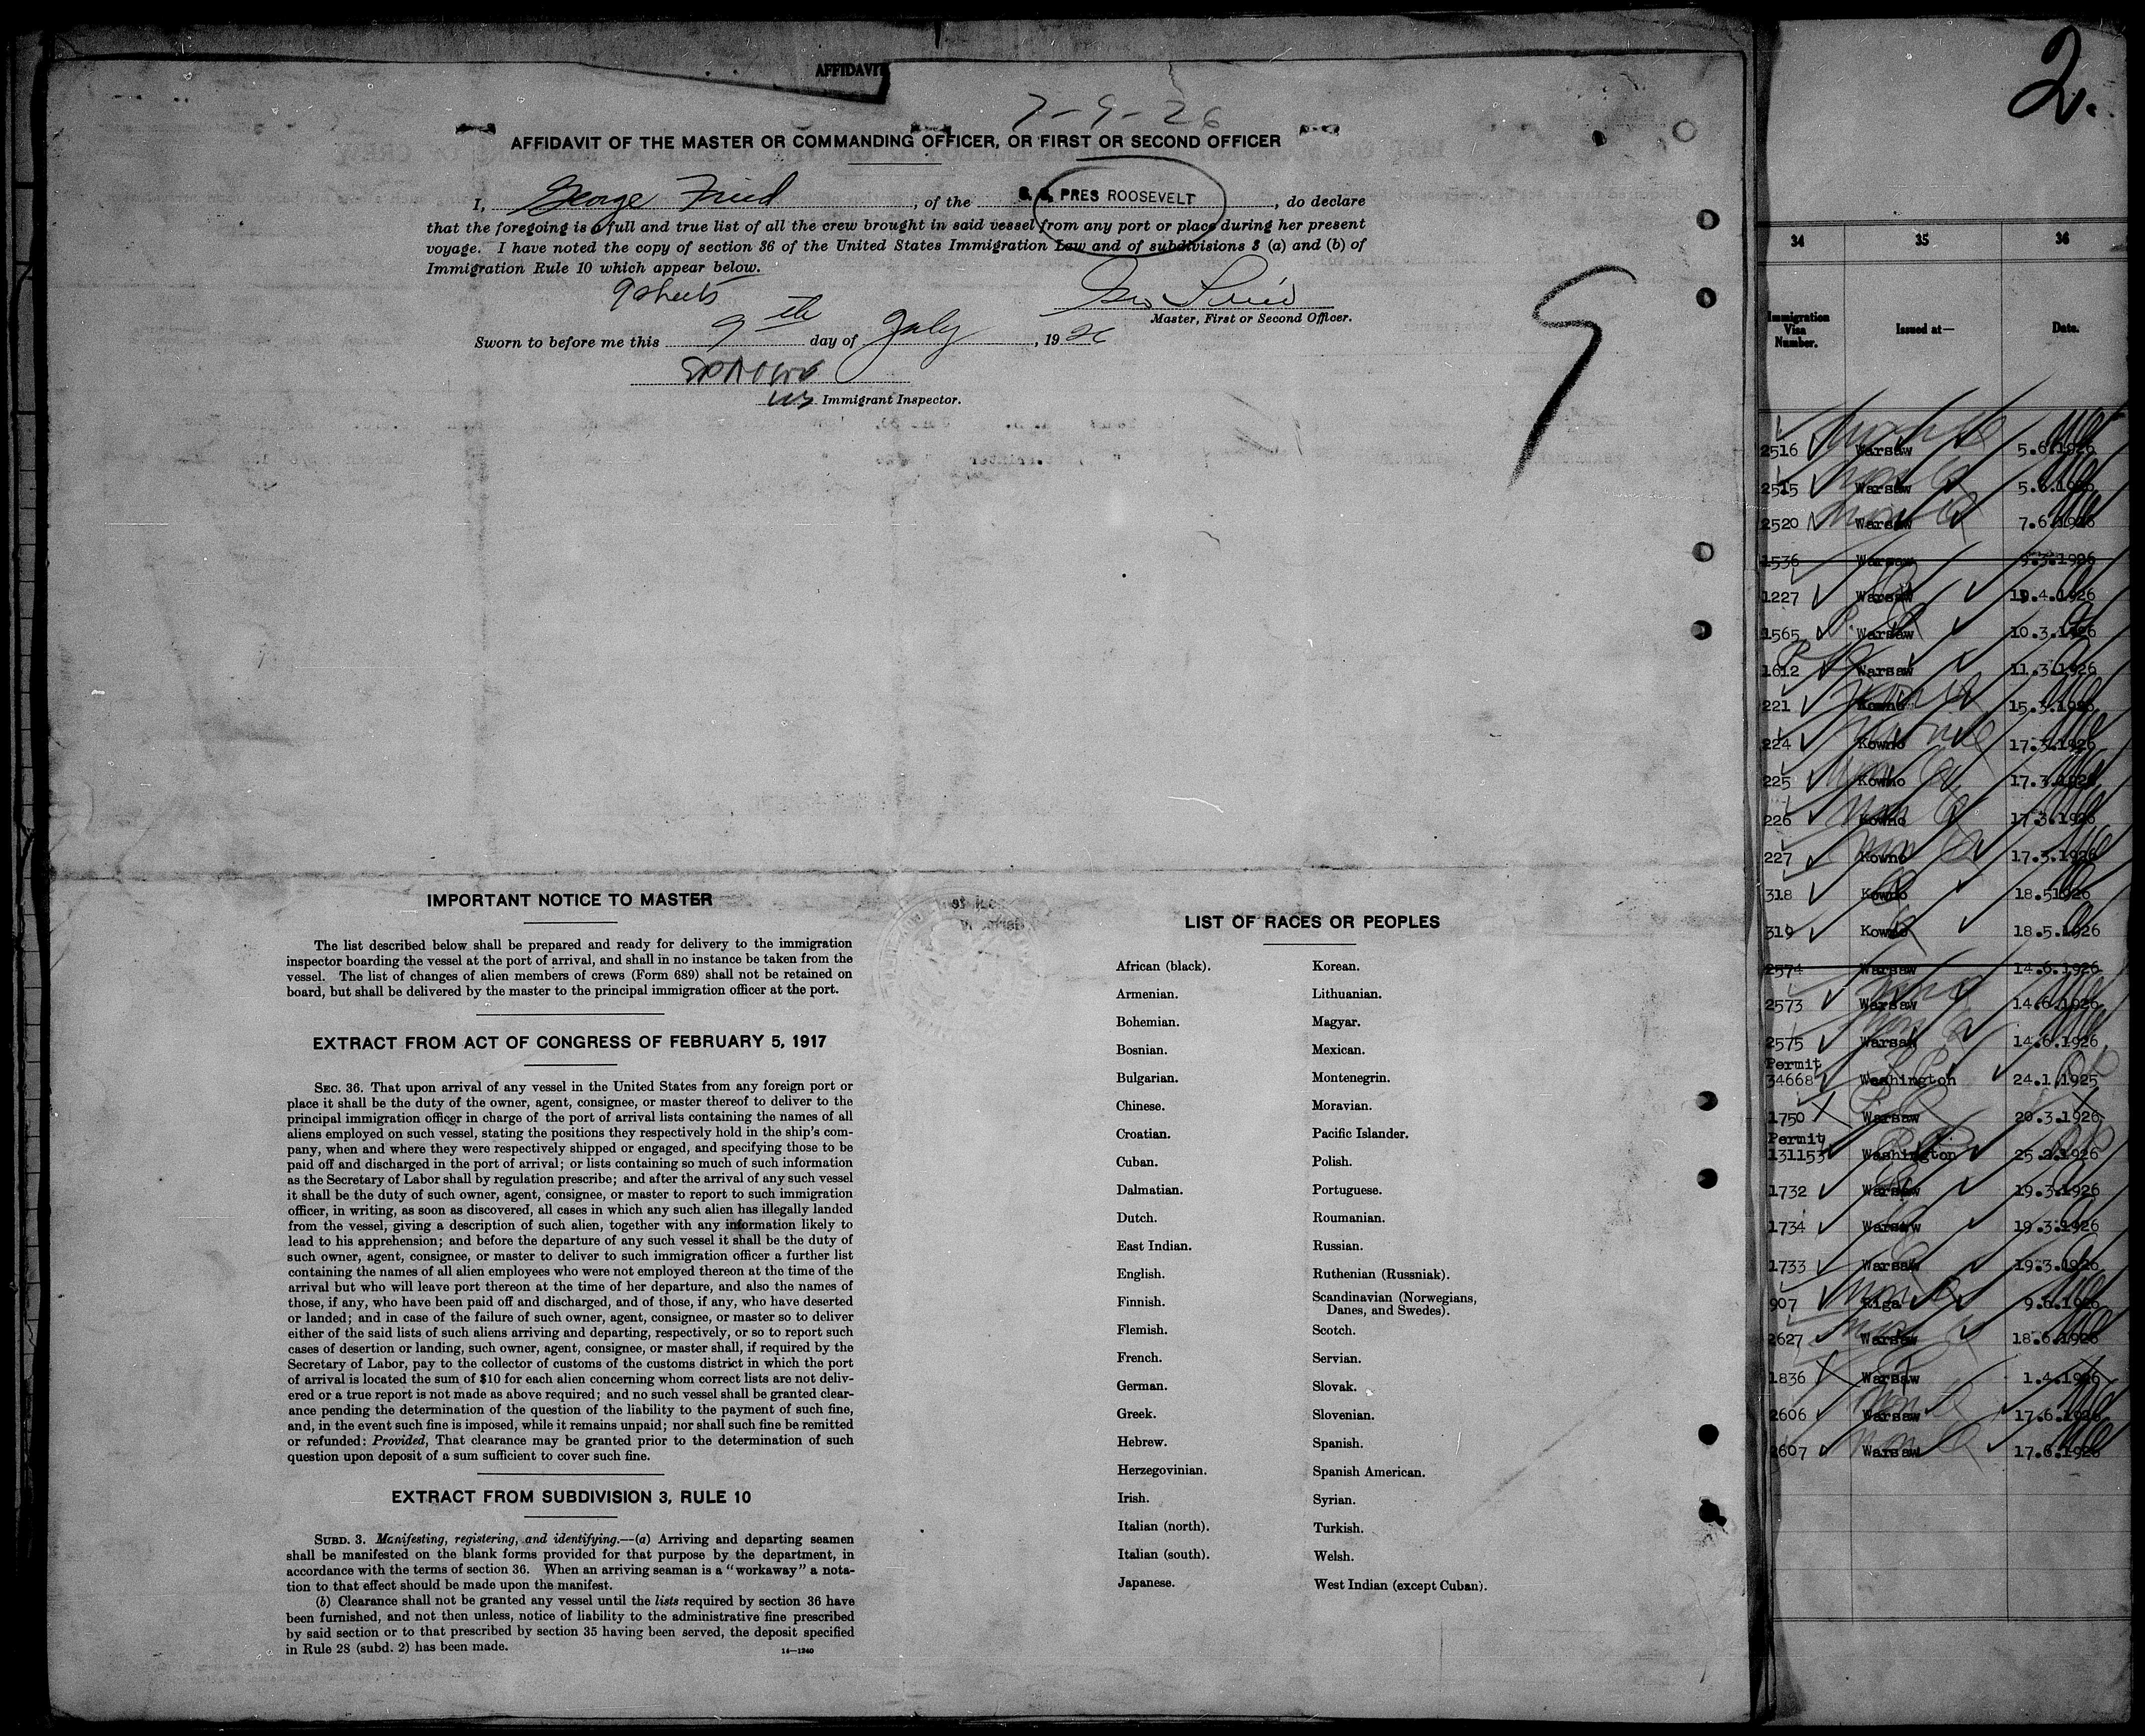 AFFIDAVIT
7-9-26
AFFIDAVIT OF THE MASTER OR COMMANDING OFFICER, OR FIRST OR SECOND OFFICER
I, George Fried, of the S. S. PRES ROOSEVELT, do declare
that the foregoing is a full and true list of all the crew brought in said vessel from any port or place during her present
voyage. I have noted the copy of section 36 of the United States Immigration Law and of subdivisions 3 (a) and (b) of
Immigration Rule 10 which appear below.
9 sheets
Geo Fried
Master, First or Second Officer.
Sworn to before me this 9th day of July, 1926
Immigrant Inspector.
9
IMPORTANT NOTICE TO MASTER
The list described below shall be prepared and ready for delivery to the immigration
inspector boarding the vessel at the port of arrival, and shall in no instance be taken from the
vessel. The list of changes of alien members of crews (Form 689) shall not be retained on
board, but shall be delivered by the master to the principal immigration officer at the port.
EXTRACT FROM ACT OF CONGRESS OF FEBRUARY 5, 1917
SEC. 36. That upon arrival of any vessel in the United States from any foreign port or
place it shall be the duty of the owner, agent, consignee, or master thereof to deliver to the
principal immigration officer in charge of the port of arrival lists containing the names of all
aliens employed on such vessel, stating the positions they respectively hold in the ship's com-
pany, when and where they were respectively shipped or engaged, and specifying those to be
paid off and discharged in the port of arrival; or lists containing so much of such information
as the Secretary of Labor shall by regulation prescribe; and after the arrival of any such vessel
it shall be the duty of such owner, agent, consignee, or master to report to such immigration
officer, in writing, as soon as discovered, all cases in which any such alien has illegally landed
from the vessel, giving a description of such alien, together with any information likely to
lead to his apprehension; and before the departure of any such vessel it shall be the duty of
such owner, agent, consignee, or master to deliver to such immigration officer a further list
containing the names of all alien employees who were not employed thereon at the time of the
arrival but who will leave port thereon at the time of her departure, and also the names of
those, if any, who have been paid off and discharged, and of those, if any, who have deserted
or landed; and in case of the failure of such owner, agent, consignee, or master so to deliver
either of the said lists of such aliens arriving and departing, respectively, or so to report such
cases of desertion or landing, such owner, agent, consignee, or master shall, if required by the
Secretary of Labor, pay to the collector of customs of the customs district in which the port
of arrival is located the sum of $10 for each alien concerning whom correct lists are not deliv-
ered or a true report is not made as above required; and no such vessel shall be granted clear-
ance pending the determination of the question of the liability to the payment of such fine,
and, in the event such fine is imposed, while it remains unpaid; nor shall such fine be remitted
or refunded: Provided, That clearance may be granted prior to the determination of such
question upon deposit of a sum sufficient to cover such fine.
EXTRACT FROM SUBDIVISION 3, RULE 10
SUBD. 3. Manifesting, registering, and identifying.—(a) Arriving and departing seamen
shall be manifested on the blank forms provided for that purpose by the department, in
accordance with the terms of section 36. When an arriving seaman is a "workaway" a nota-
tion to that effect should be made upon the manifest.
(b) Clearance shall not be granted any vessel until the lists required by section 36 have
been furnished, and not then unless, notice of liability to the administrative fine prescribed
by said section or to that prescribed by section 35 having been served, the deposit specified
in Rule 28 (subd. 2) has been made.
14—1240
LIST OF RACES OR PEOPLES
African (black).
Armenian.
Bohemian.
Bosnian.
Bulgarian.
Chinese.
Croatian.
Cuban.
Dalmatian.
Dutch.
East Indian.
English.
Finnish.
Flemish.
French.
German.
Greek.
Hebrew.
Herzegovinian.
Irish.
Italian (north).
Italian (south).
Japanese.
Korean.
Lithuanian.
Magyar.
Mexican.
Montenegrin.
Moravian.
Pacific Islander.
Polish.
Portuguese.
Roumanian.
Russian.
Ruthenian (Russniak).
Scandinavian (Norwegians,
Danes, and Swedes).
Scotch.
Servian.
Slovak.
Slovenian.
Spanish.
Spanish American.
Syrian.
Turkish.
Welsh.
West Indian (except Cuban).
2.
34 35 36
Immigration
Visa
Number.
Issued at—
Date.
2516 Warsaw 5.6.1926
2515 Warsaw 5.6.1926
2520 Warsaw 7.6.1926
1536 Warsaw 9.3.1926
1227 Warsaw 19.4.1926
1565 Warsaw 10.3.1926
1612 Warsaw 11.3.1926
221 Kowno 15.3.1926
224 Kowno 17.3.1926
225 Kowno 17.3.1926
226 Kowno 17.3.1926
227 Kowno 17.3.1926
318 Kowno 18.5.1926
319 Kowno 18.5.1926
2574 Warsaw 14.6.1926
2573 Warsaw 14.6.1926
2575 Warsaw 14.6.1926
Permit
34668 Washington 24.1.1925
1750 Warsaw 20.3.1926
Permit
131153 Washington 25.2.1926
1732 Warsaw 19.3.1926
1734 Warsaw 19.3.1926
1733 Warsaw 19.3.1926
907 Riga 9.6.1926
2627 Warsaw 18.6.1926
1836 Warsaw 1.4.1926
2606 Warsaw 17.6.1926
2607 Warsaw 17.6.1926